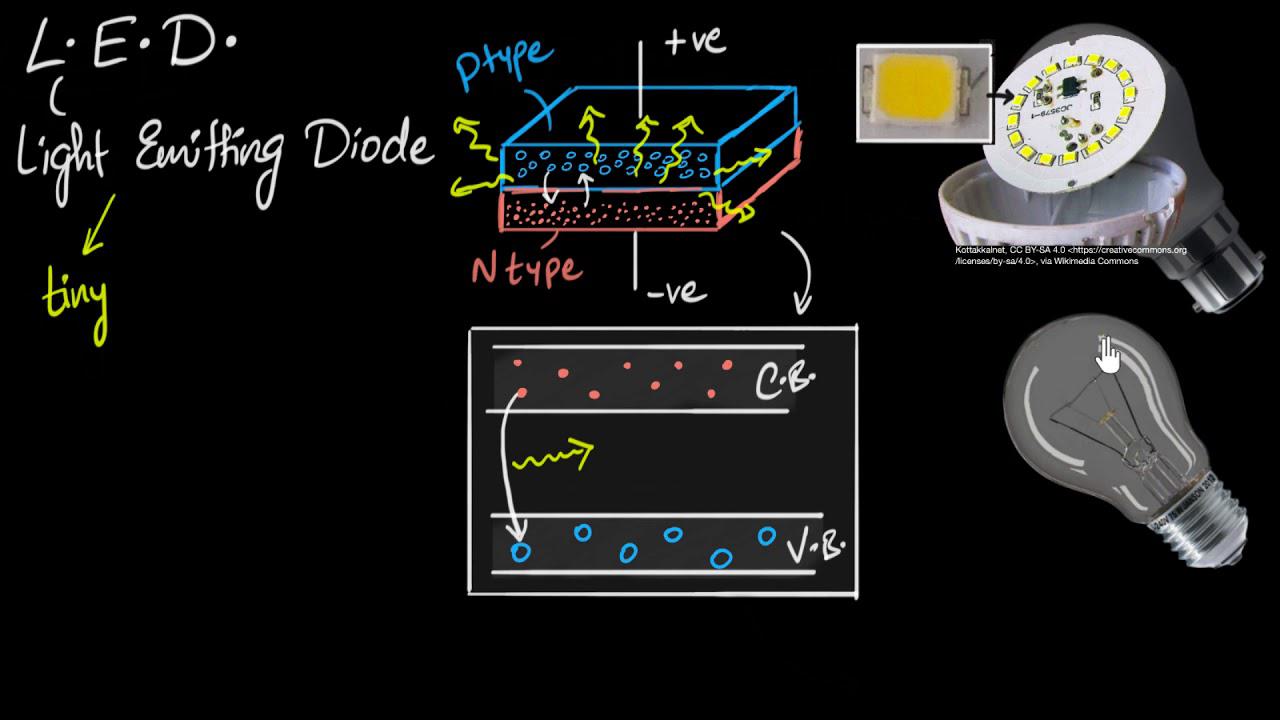 L.E.D.
Light Emitting Diode
tiny
P type
+ve
N type
-ve
C.B.
V.B.
Kottakkalnet, CC BY-SA 4.0 <https://creativecommons.org
/licenses/by-sa/4.0>, via Wikimedia Commons